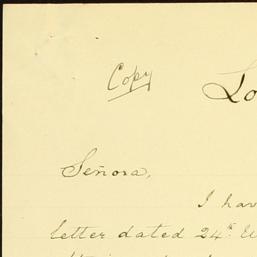 Copy
Lo
Señora,
I hav
letter dated 24th U